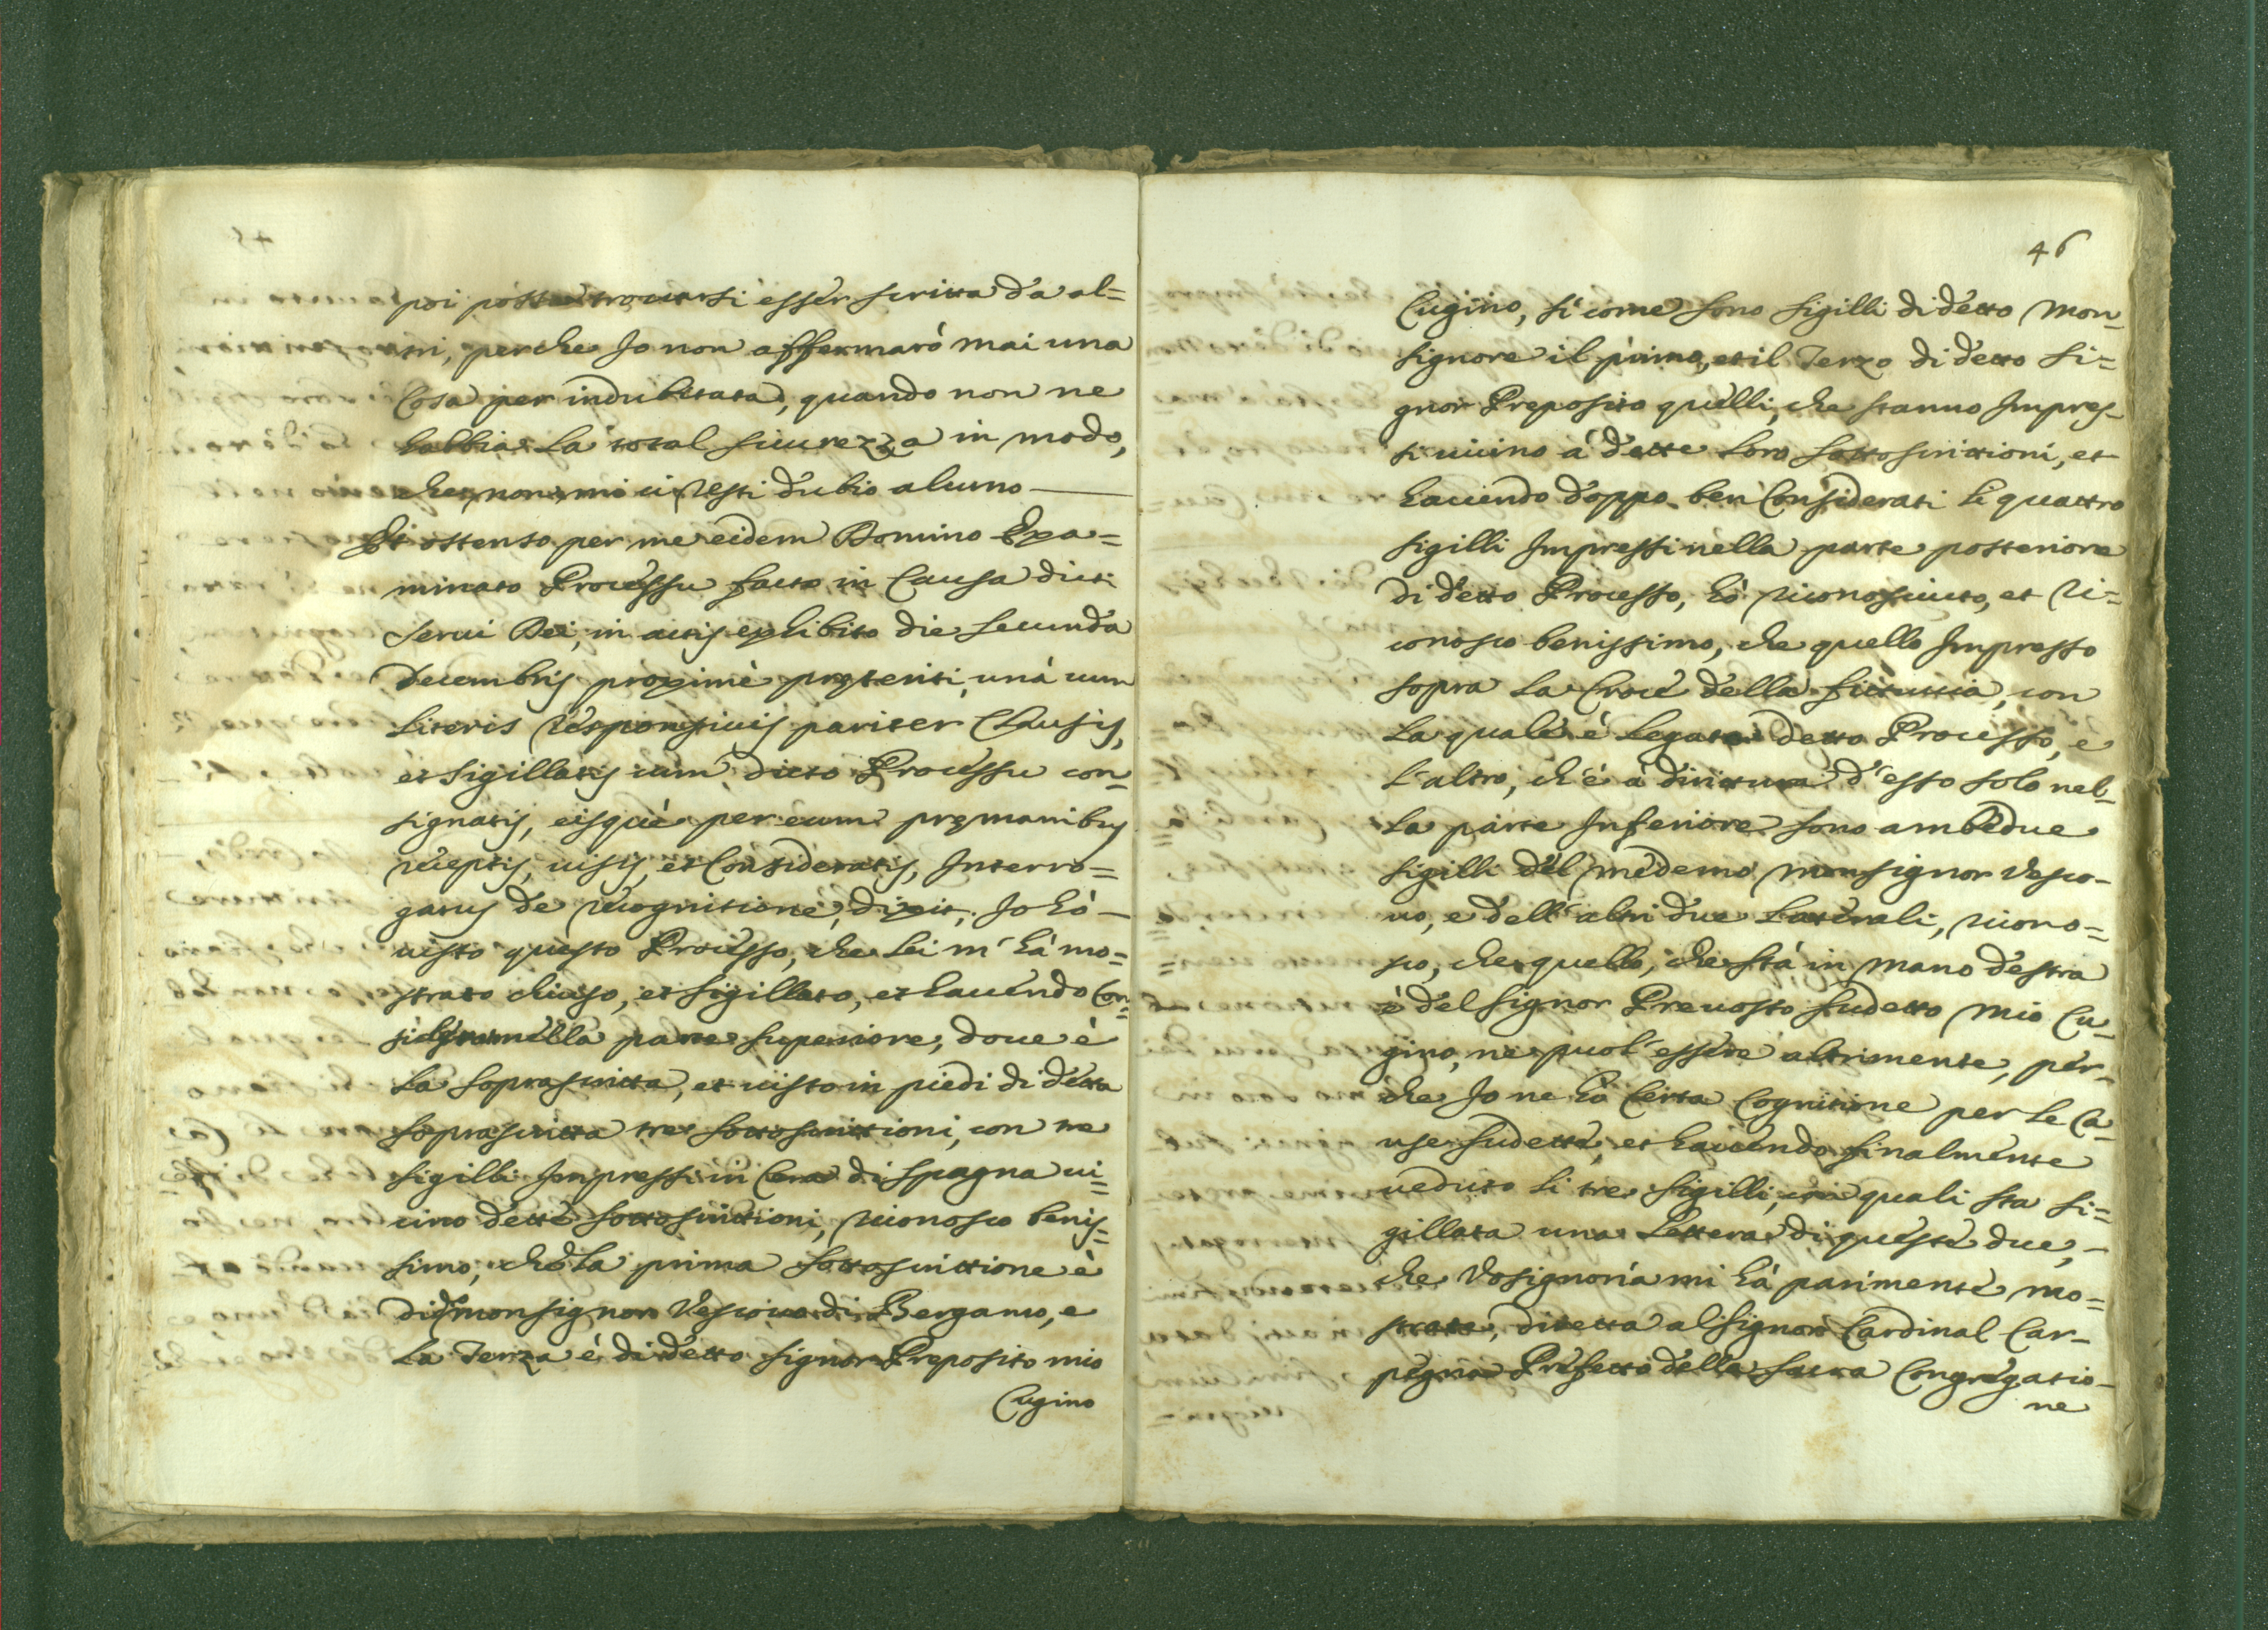 poi possa trouarsi esser scritta da al=
tri, perche Io non affermarò mai una
Cosa per indubitata, quando non ne
habbia la total sicurezza in modo,
che non mi ci resti dubio alcuno
Et ostenso per me eidem Domino Exa=
minato Processu facto in Causa dicti
Serui Dei, in actis exhibito die secunda
Decembris proximè præteriti, unà cum
Literis responsiuis pariter Clausis,
et Sigillatis cum dicto Processu con=
signatis, eisquè per eum præmanibus
receptis, uisis, et Consideratis, Interro=
gatus de recognitione, dixit, Io hò
uisto questo Processo, che lei m'hà mo=
strato chiuso, et sigillato, et hauendo Con=
siderato nella parte superiore, doue è
la soprascritta, et uisto in piedi di detta
soprascritta tre sottoscrittioni, con tre
sigilli Impressi in Cera di Spagna ui=
cino dette sottoscrittioni, riconosco benis=
simo, che la prima sottoscrittione è
di Monsignor Vescouo di Bergamo, e
la Terza è di detto Signor Preposito mio
Cugino
46
Cugino, sì come sono sigilli di detto Mon=
signore il primo, et il Terzo di detto Si=
gnor Preposito quelli, che stanno Impres=
si uicino à dette loro sottoscrittioni, et
hauendo doppo ben Considerati li quattro
sigilli Impressi nella parte posteriore
di detto Processo, hò riconosciuto, et ri=
conosco benissimo, che quello Impresso
sopra la Croce della fittuccia, con
la quale è legato detto Processo, e
l'altro, ch'è à dirittura d'esso solo nel=
la parte Inferiore sono ambedue
sigilli del medemo Monsignor Vesco=
uo, e dell'altri due laterali, ricono=
sco, che quello, che stà in mano destra
è del Signor Preuosto sudetto mio Cu=
gino, ne puol' essere altrimente, per=
che Io ne hò Certa Cognitione per le Ca=
use sudette, et hauendo finalmente
ueduto li tre sigilli, con quali sta si=
gillata una lettera di queste due,
che Vosignoria mi hà parimente mo=
strate, diretta al Signor Cardinal Car=
pegna Prefetto della Sacra Congregatio=
ne